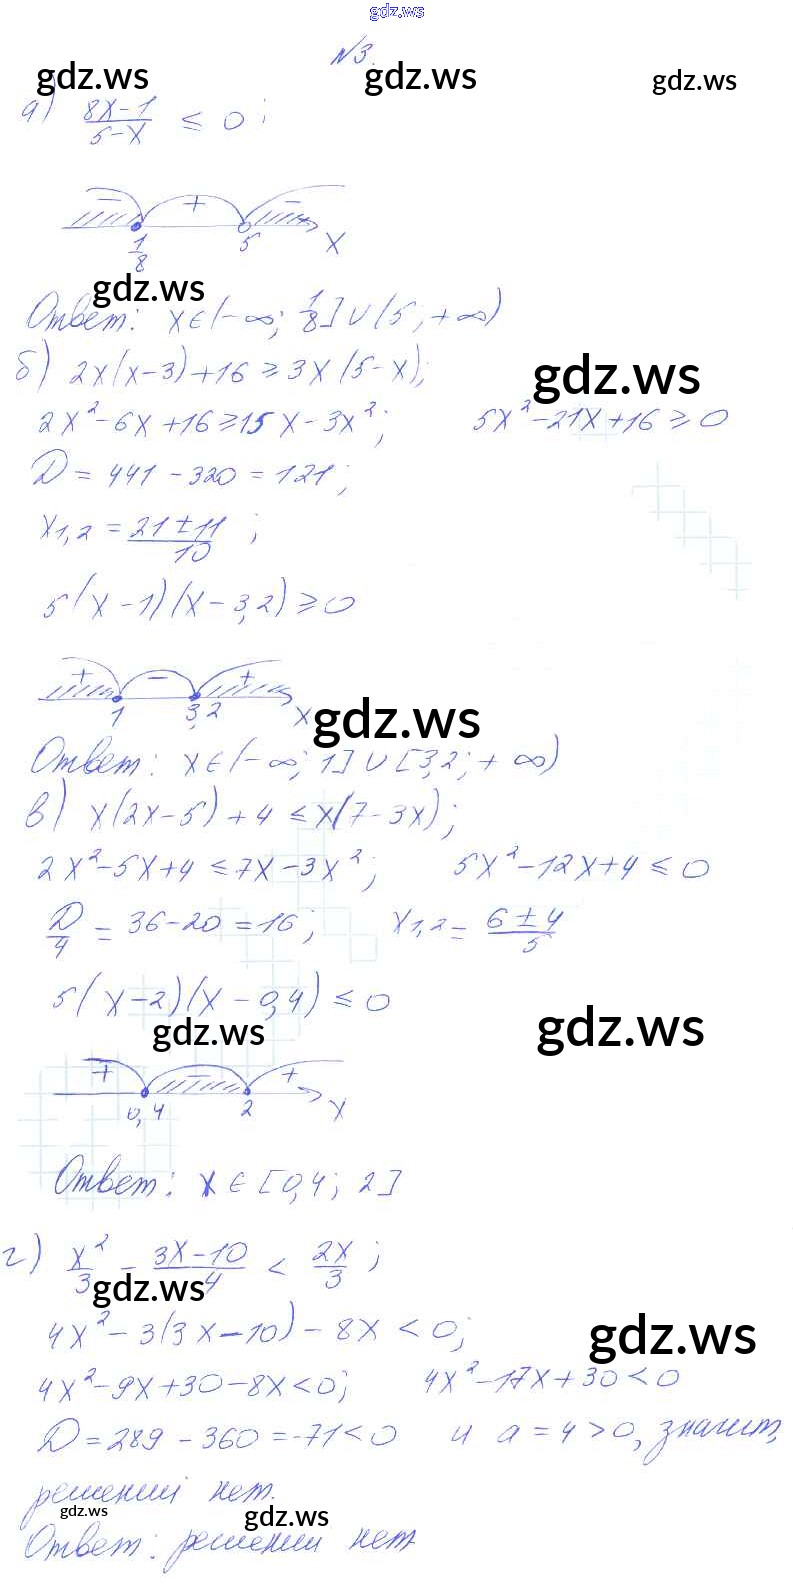 gdz.ws
№3.
gdz.ws gdz.ws gdz.ws
а) (8x-1)/(5-x) ≤ 0;
− + −
1/8 5 x
gdz.ws
Ответ: x∈(-∞; 1/8]∪(5; +∞)
б) 2x(x-3)+16 ≥ 3x(5-x);
gdz.ws
2x²-6x+16 ≥ 15x-3x²; 5x²-21x+16 ≥ 0
D = 441 - 320 = 121;
x₁,₂ = (21±11)/10;
5(x-1)(x-3,2) ≥ 0
+ − +
1 3,2 x
gdz.ws
Ответ: x∈(-∞; 1]∪[3,2; +∞)
в) x(2x-5)+4 ≤ x(7-3x);
2x²-5x+4 ≤ 7x-3x²; 5x²-12x+4 ≤ 0
D/4 = 36-20 = 16; x₁,₂ = (6±4)/5
5(x-2)(x-0,4) ≤ 0
gdz.ws gdz.ws
+ − +
0,4 2 x
Ответ: x∈[0,4; 2]
г) x²/3 - (3x-10)/4 < 2x/3;
gdz.ws
4x²-3(3x-10)-8x < 0;
gdz.ws
4x²-9x+30-8x<0; 4x²-17x+30<0
D = 289 - 360 = -71 < 0 и a = 4 > 0, значит,
решений нет.
gdz.ws gdz.ws
Ответ: решений нет